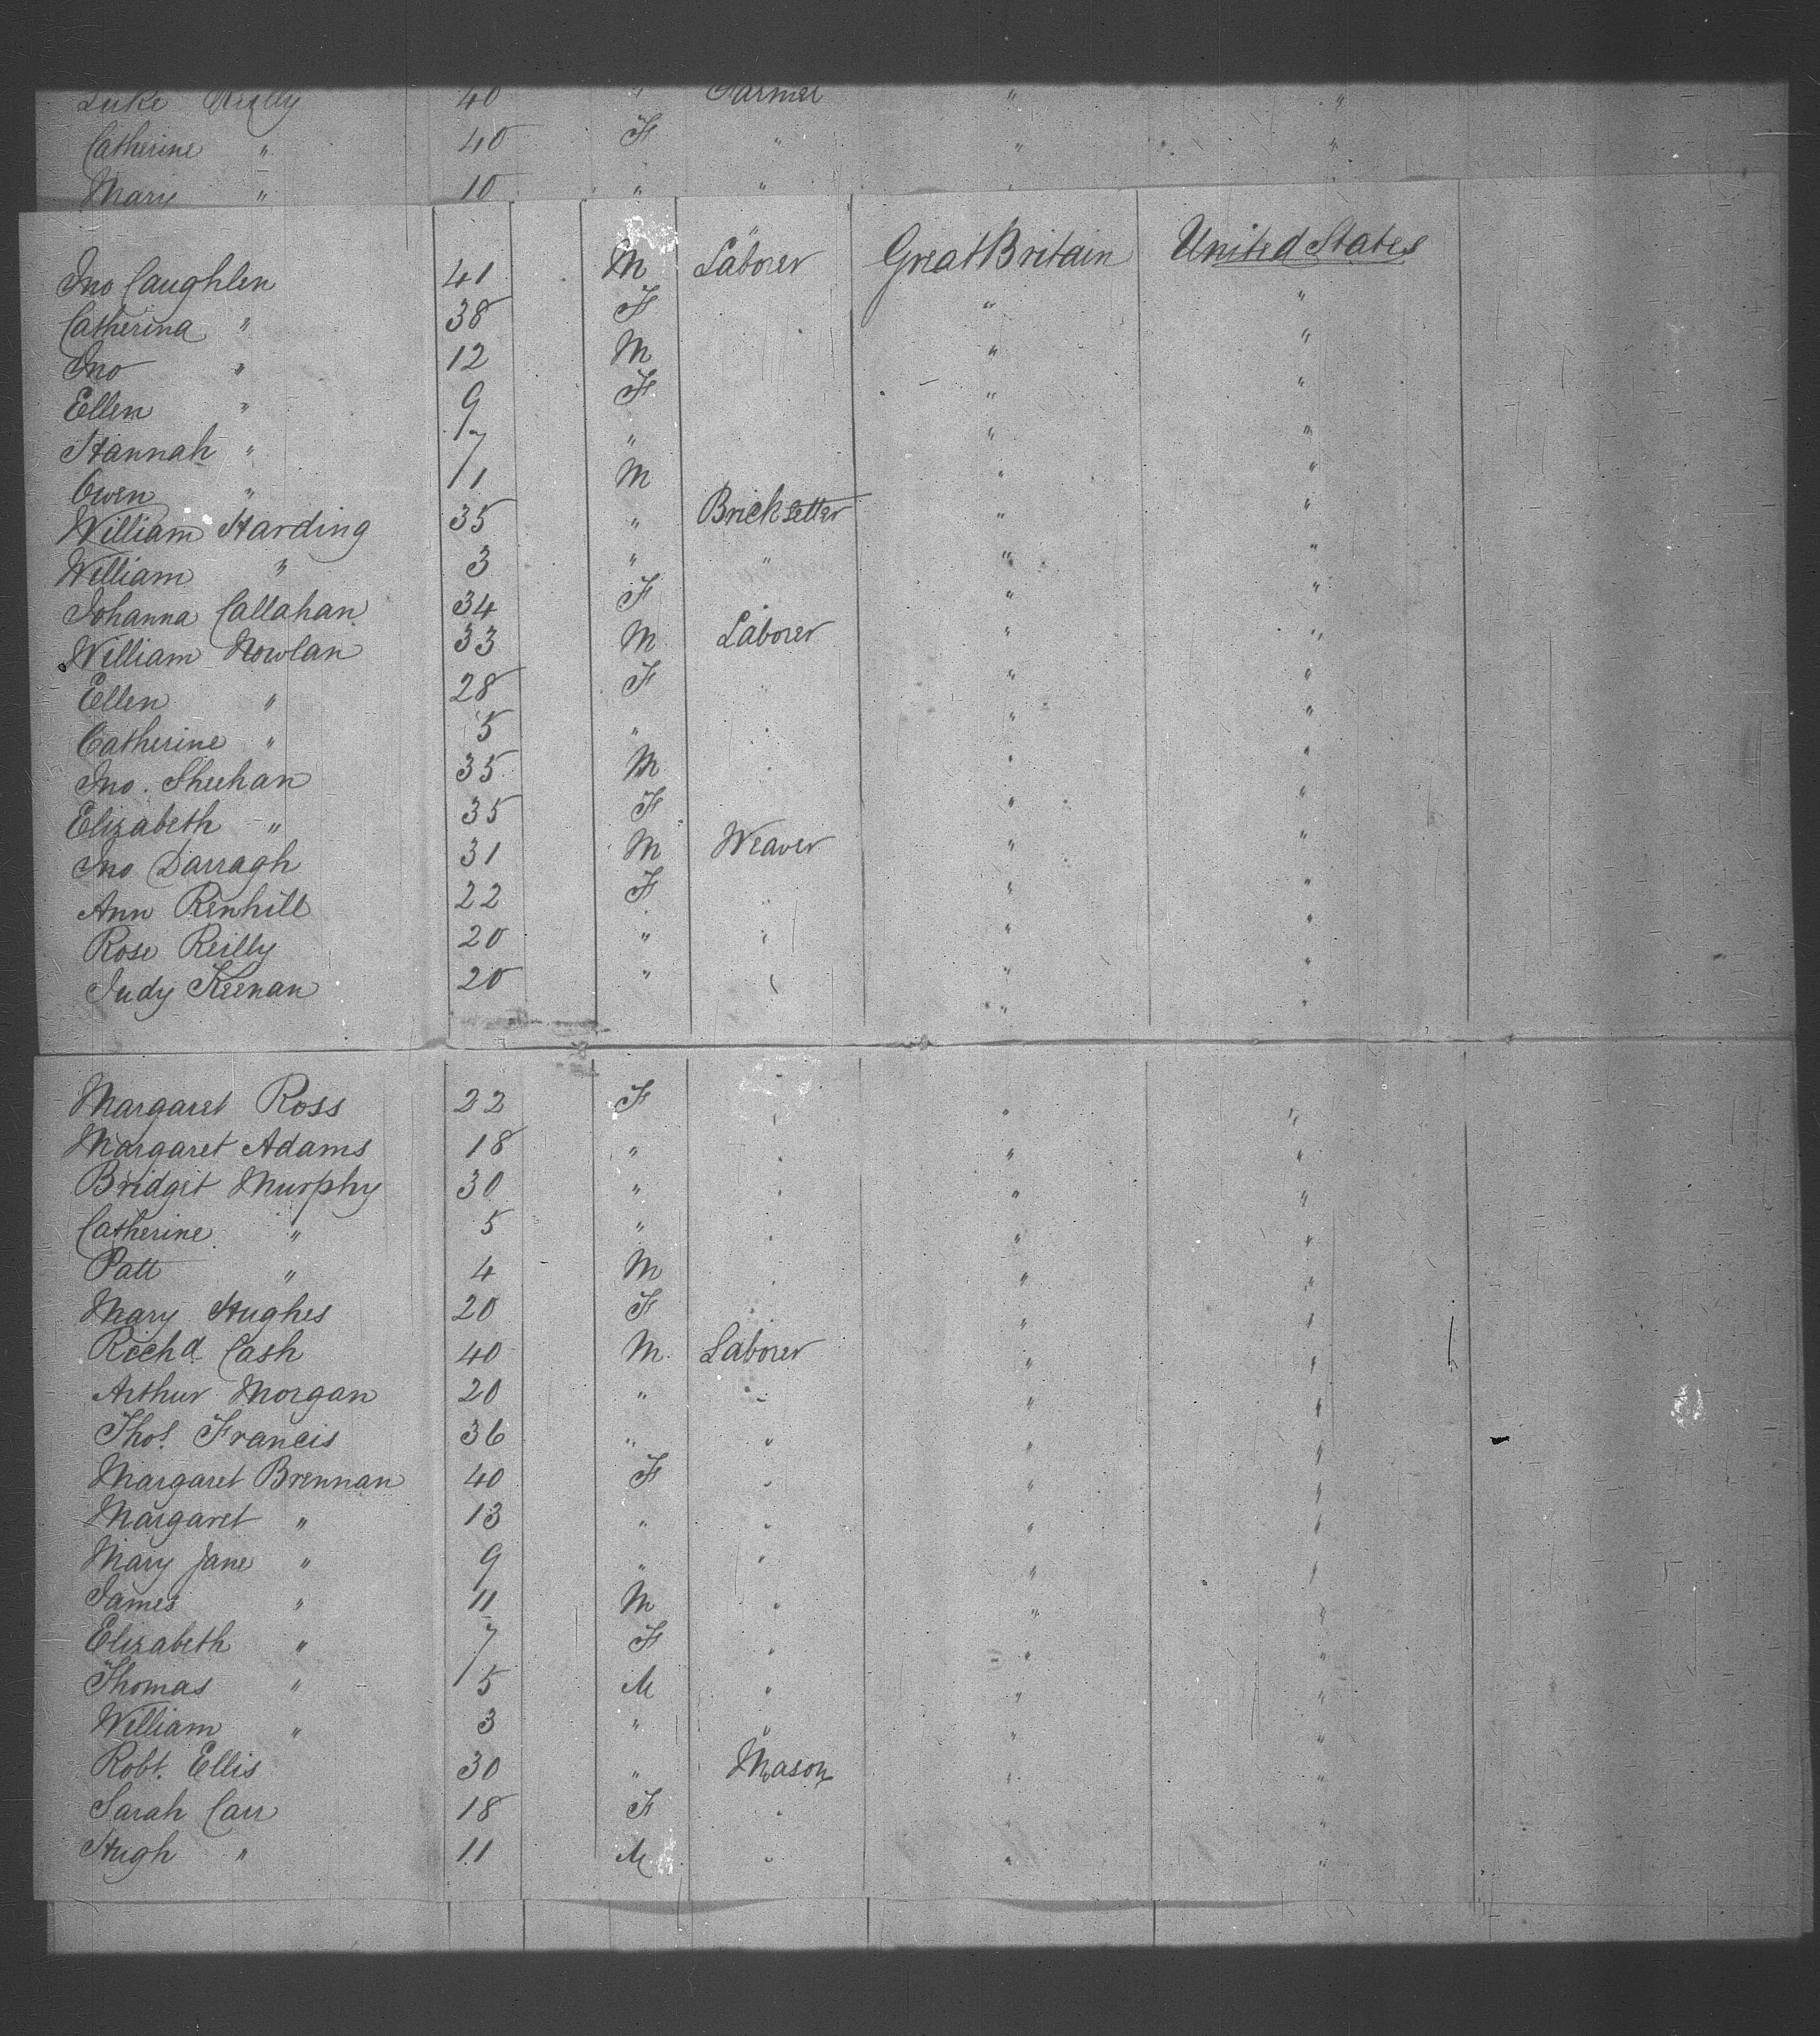 Luke Reilly 40 " Farmer " "
Catherine " 40 F " " "
Mary " 10 " "
Jno Caughlen 41 M Laborer Great Britain United States
Catherina " 38 F " "
Jno " 12 M " "
Ellen " 9 F " "
Hannah " 7 " " "
Owen " 11 M " "
William Harding 35 " Brick setter " "
William " 3 " " " "
Johanna Callahan 34 F " "
William Nowlan 33 M Laborer " "
Ellen " 28 F " "
Catherine " 5 " " "
Jno. Sheehan 35 M " "
Elizabeth " 35 F " "
Jno Darragh 31 M Weaver " "
Ann Renhill 22 F " " "
Rose Reilly 20 " " " "
Judy Keenan 20 " " " "
Margaret Ross 22 F " " "
Margaret Adams 18 " " " "
Bridgit Murphy 30 " " " "
Catherine " 5 " " " "
Patt " 4 M " " "
Mary Hughes 20 F " "
Richd Cash 40 M Laborer " "
Arthur Morgan 20 " " " "
Thos. Francis 36 " " " "
Margaret Brennan 40 F " " "
Margaret " 13 " " " "
Mary Jane " 9 " " " "
James " 11 M " " "
Elizabeth " 7 F " " "
Thomas " 5 M " " "
William " 3 " " " "
Robt. Ellis 30 " Mason " "
Sarah Carr 18 F " " "
Hugh " 11 M " " "